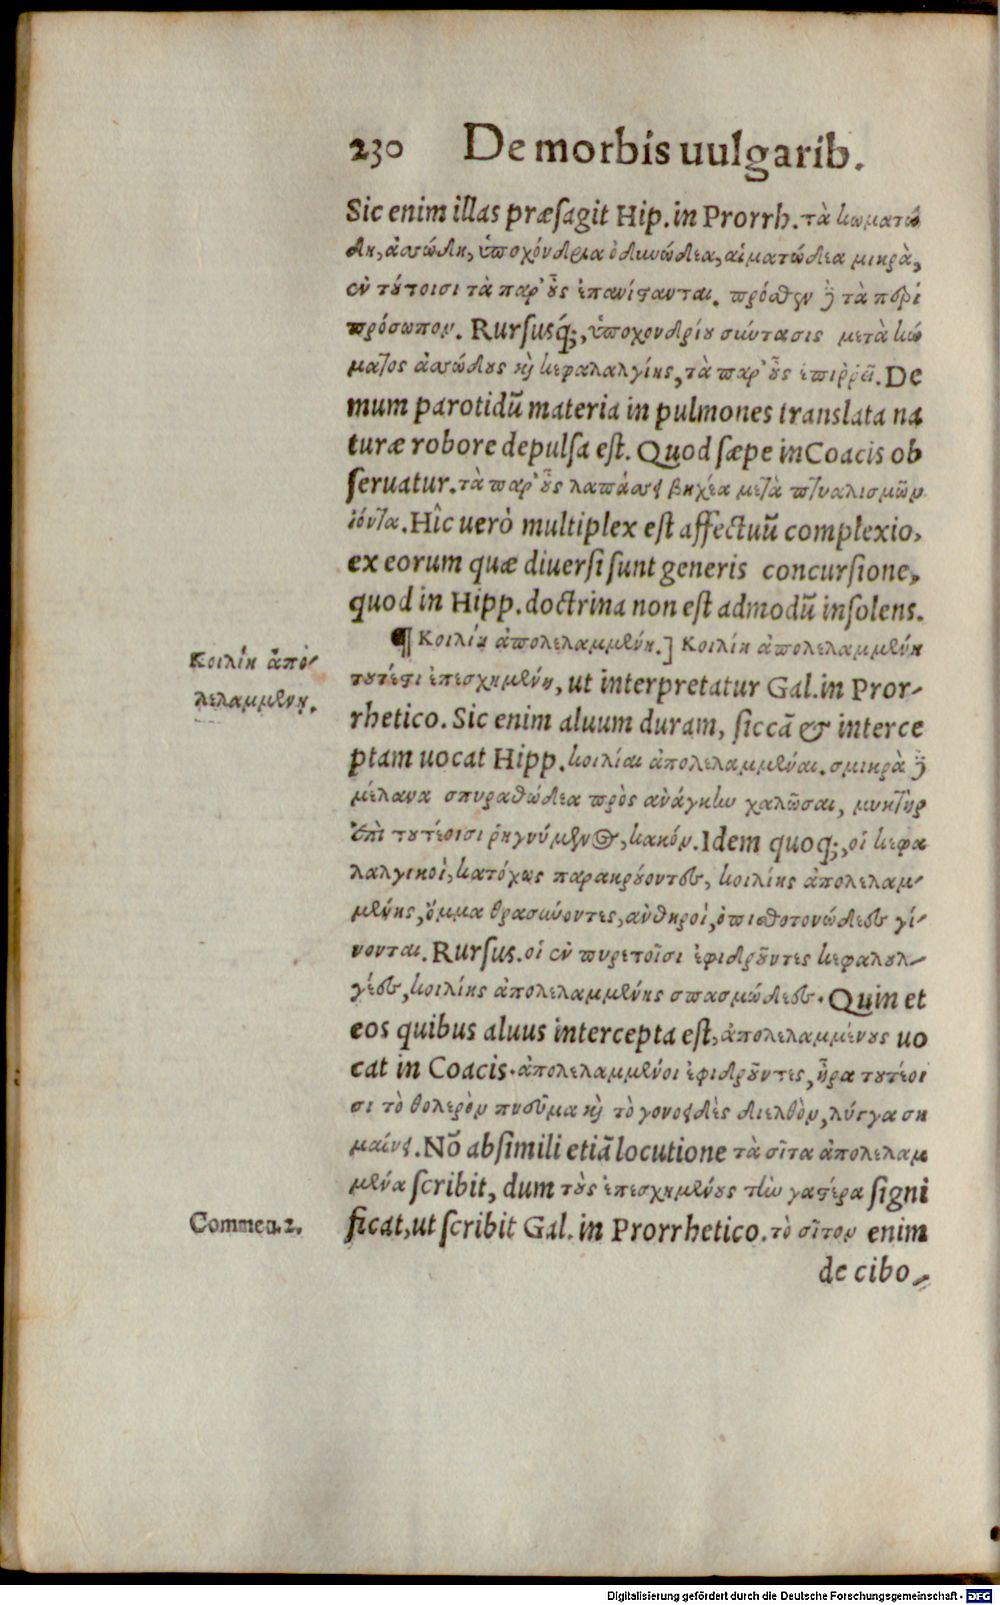 230 De morbis uulgarib.
Sic enim illas præsagit Hip. in Prorrh. τὰ κωματώ
δη, ἀσώδη, ὑποχόνδρια ὀδυνώδεα, αἱματώδεα μικρὰ,
ἐν τούτοισι τὰ παρ' οὖς ἐπανίσταται. πρόσθεν ἢ τὰ περὶ
πρόσωπον. Rursusq́;, ὑποχονδρίου σύντασις μετὰ κώ
ματος ἀσώδους καὶ κεφαλαλγίης, τὰ παρ' οὖς ἐπαίρει. De
mum parotidũ materia in pulmones translata na
turæ robore depulsa est. Quod sæpe in Coacis ob
seruatur. τὰ παρ' οὖς λαπάσσει βηχέα μετὰ πτυαλισμῶν
ἰόντα. Hîc uerò multiplex est affectuũ complexio,
ex eorum quæ diuersi sunt generis concursione,
quod in Hipp. doctrina non est admodũ insolens.
¶ Κοιλίη ἀπολελαμμένη.] Κοιλίη ἀπολελαμμένη
Κοιλίη ἀπο-
λελαμμένη.
τουτέστι ἐπεσχημένη, ut interpretatur Gal. in Pror-
rhetico. Sic enim aluum duram, siccã & interce
ptam uocat Hipp. κοιλίαι ἀπολελαμμέναι. σμικρὰ ἢ
μέλανα σπυραθώδεα πρὸς ἀνάγκην χαλῶσαι, μυκτὴρ
ἐπὶ τουτέοισι ῥηγνύμενος, κακόν. Idem quoq;, οἱ κεφα
λαλγικοὶ, κατόχως παρακρούοντες, κοιλίης ἀπολελαμ-
μένης, ὄμμα θρασύνοντες, ἀνθηροὶ, ὀπισθοτονώδεες γί-
νονται. Rursus. οἱ ἐν πυρετοῖσι ἐφιδροῦντες κεφαλαλ-
γέες, κοιλίης ἀπολελαμμένης σπασμώδεες. Quin et
eos quibus aluus intercepta est, ἀπολελαμμένους uo
cat in Coacis. ἀπολελαμμένοι ἐφιδροῦντες, ἦρα τουτέοι
σι τὸ θολερὸν πνεῦμα καὶ τὸ γονοειδὲς διελθὸν, λύγγα ση
μαίνει. Nõ absimili etiã locutione τὰ σῖτα ἀπολελαμ
μένα scribit, dum τοὺς ἐπεσχημένους τὴν γαστέρα signi
Commen. 2.
ficat, ut scribit Gal. in Prorrhetico. τὸ σῖτον enim
de cibo-
Digitalisierung gefördert durch die Deutsche Forschungsgemeinschaft - DFG